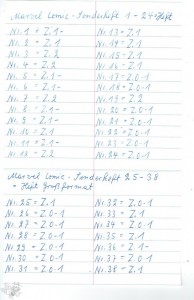 Marvel Comic-Sonderheft 1-24-Heft
Nr. 1 = Z.1- Nr. 13 = Z.1
Nr. 2 = Z.1 Nr. 14 = Z.1
Nr. 3 = Z.2 Nr. 15 = Z.1
Nr. 4 = Z.2 Nr. 16 = Z.1
Nr. 5 = Z.1- Nr. 17 = Z.0-1
Nr. 6 = Z.1- Nr. 18 = Z.0-1
Nr. 7 = Z.1 Nr. 19 = Z.1
Nr. 8 = Z.1- Nr. 20 = Z.0-1
Nr. 9 = Z.1- Nr. 21 = Z.0-1
Nr. 10 = Z.1 Nr. 22 = Z.1
Nr. 11 = Z.1- Nr. 23 = Z.0-1
Nr. 12 = Z.2 Nr. 24 = Z.0-1
Marvel Comic-Sonderheft 25-38
= Heft Großformat
Nr. 25 = Z.1 Nr. 32 = Z.0-1
Nr. 26 = Z.0-1 Nr. 33 = Z.1
Nr. 27 = Z.0-1 Nr. 34 = Z.0-1
Nr. 28 = Z.0-1 Nr. 35 = Z.1
Nr. 29 = Z.0-1 Nr. 36 = Z.1-
Nr. 30 = Z.0-1 Nr. 37 = Z.0-1
Nr. 31 = Z.0-1 Nr. 38 = Z.1